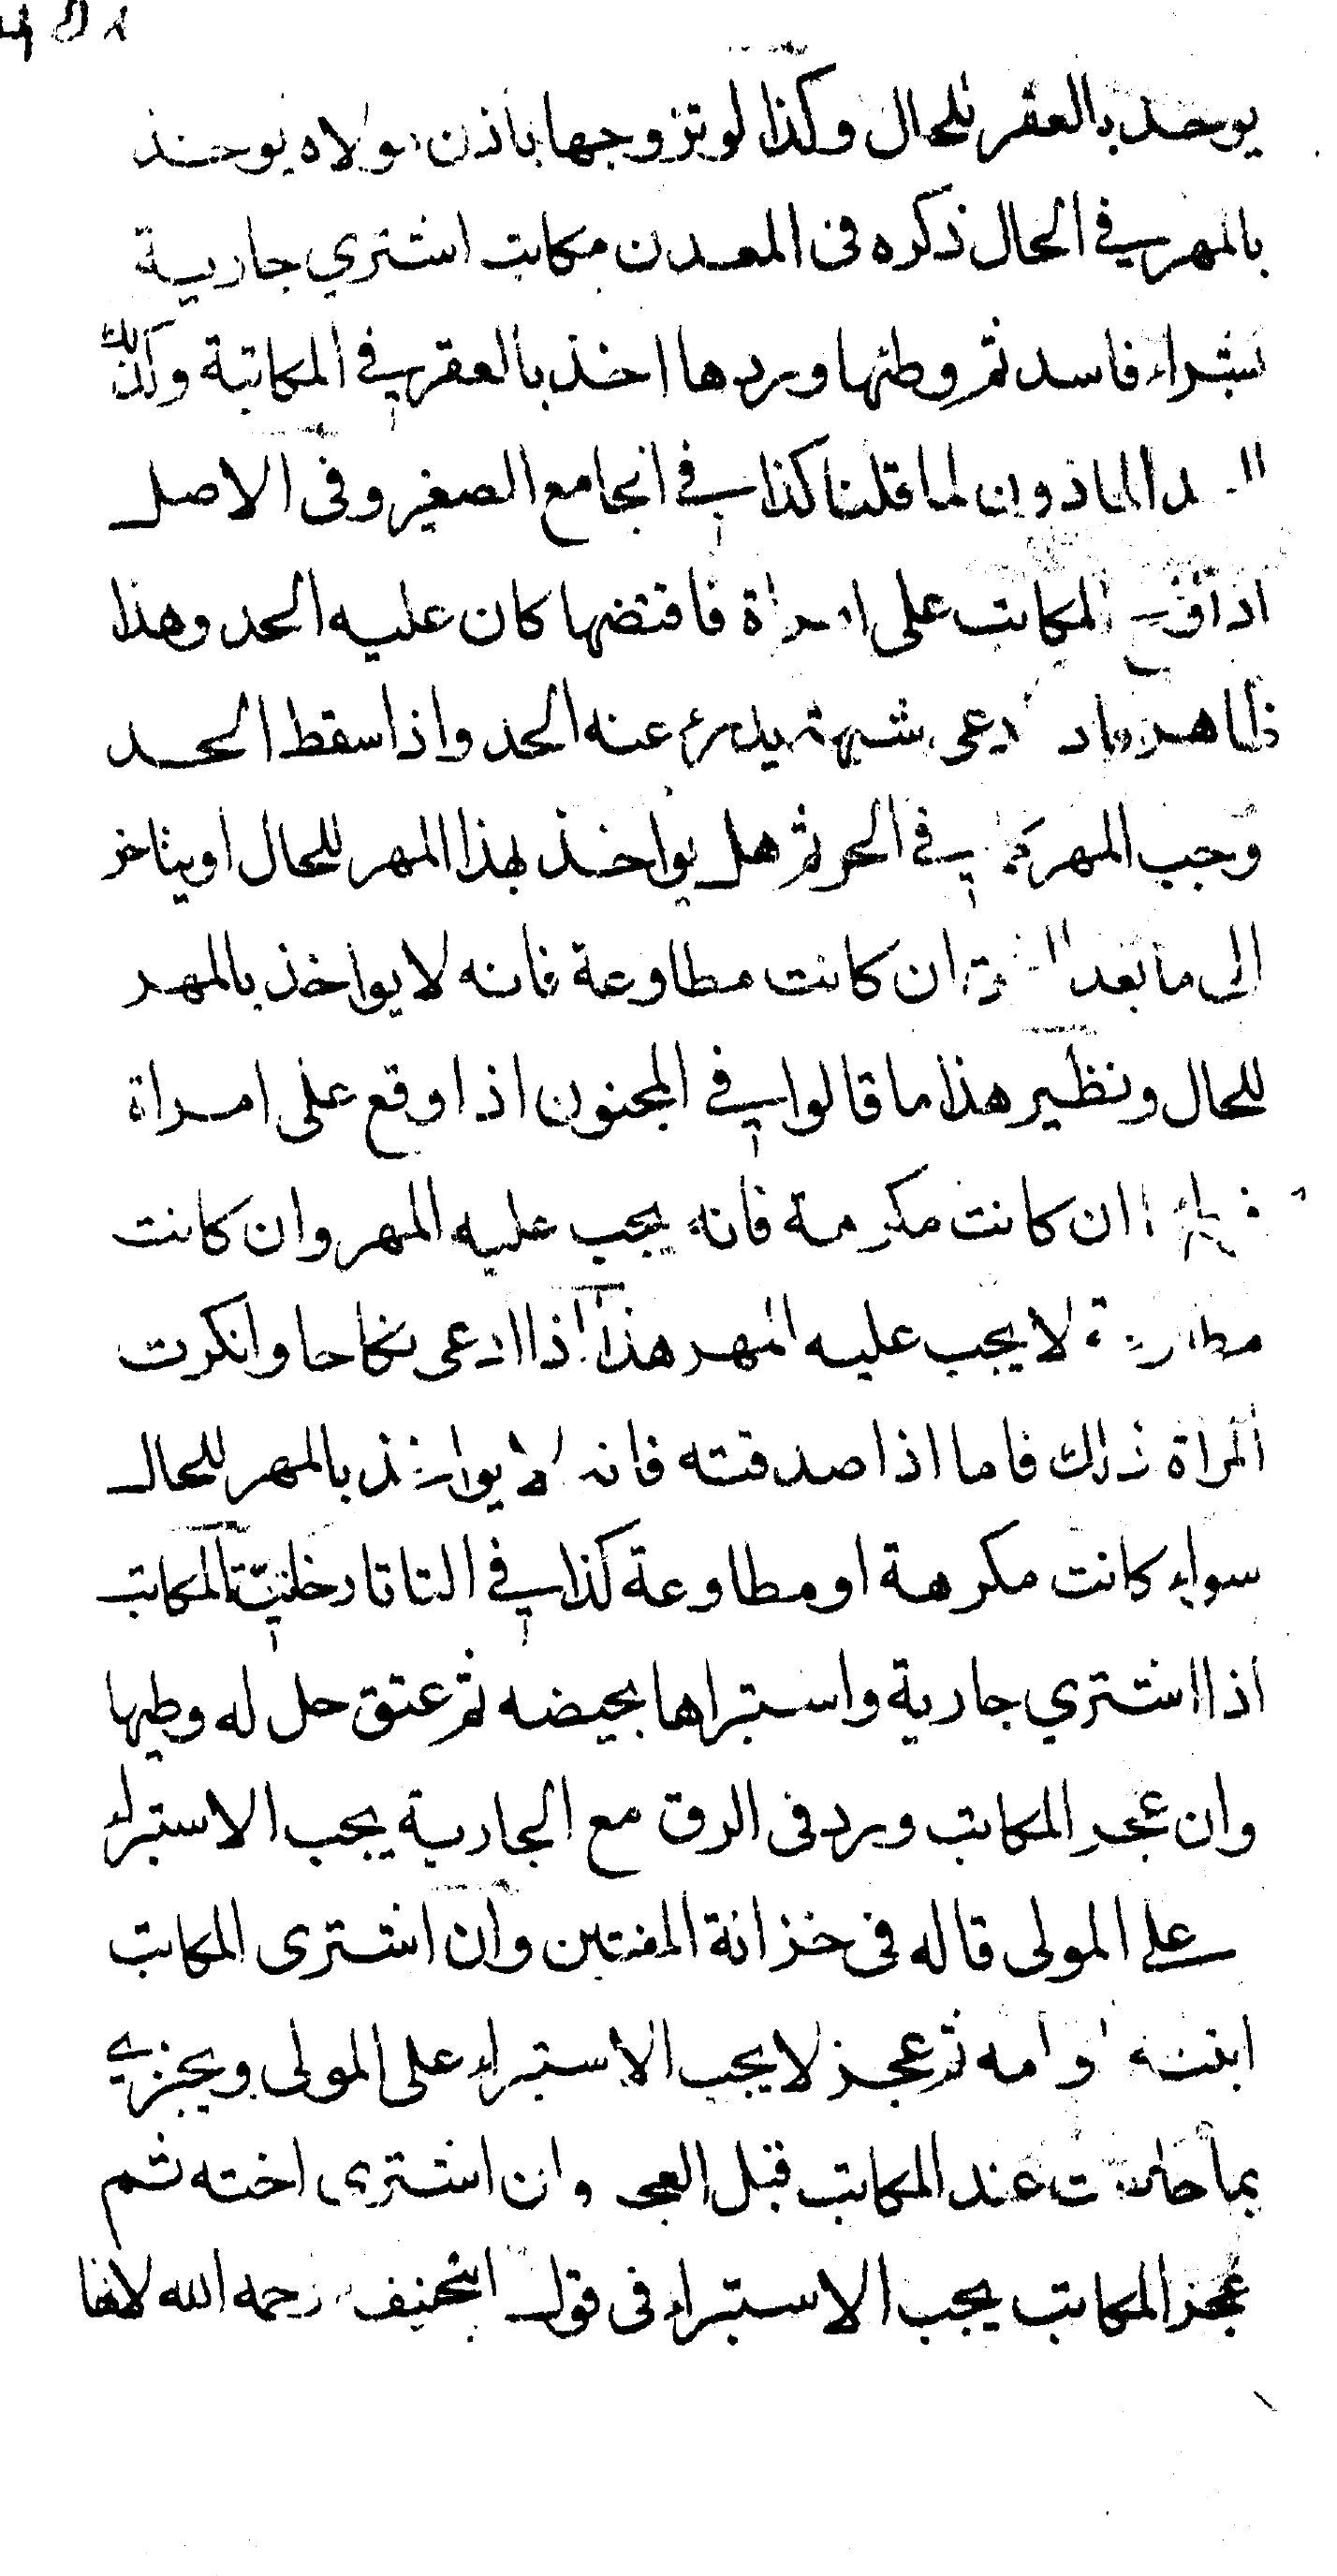 يوخذ بالعقر للحال وكذا لو تزوجها باذن مولاه يوخذ
بالمهر في الحال ذكره فى المعدن مكاتب اشتري جارية
بشراء فاسد ثم وطئها وردها اخذ بالعقر في المكاتبة وكذلك
العبد الماذون لما قلنا كذا في الجامع الصغير وفى الاصل
اذا وقع المكاتب على امراة فافتضها كان عليه الحد وهذا
ظاهر فاد ادعى شبهة يدرئ عنه الحد واذا سقط الحد
وجب المهر كما في الحر ثم هل يواخذ بهذا المهر للحال او يتاخر
الى ما بعد ان كانت مطاوعة فانه لا يواخذ بالمهر
للحال ونظير هذا ما قالوا في المجنون اذا وقع على امراة
ان كانت مكرهة فانه يجب عليه المهر وان كانت
مطاوعة لا يجب عليه المهر هذا اذا ادعى نكاحا وانكرت
المراة ذلك فاما اذا صدقته فانه لا يواخذ بالمهر للحال
سواء كانت مكرهة او مطاوعة كذا في التاتارخانية المكاتب
اذا اشتري جارية واستبراها بحيضه ثم عتق حل له وطيها
وان عجز المكاتب ورد فى الرق مع الجارية يجب الاستبراء
على المولى قاله فى خزانة المفتين وان اشترى المكاتب
ابنته او امه ثم عجز لا يجب الاستبراء على المولى ويجزي
بما حاضت عند المكاتب قبل العجز وان اشترى اخته ثم
عجز المكاتب يجب الاستبراء فى قول ابيحنيفة رحمه الله لانها